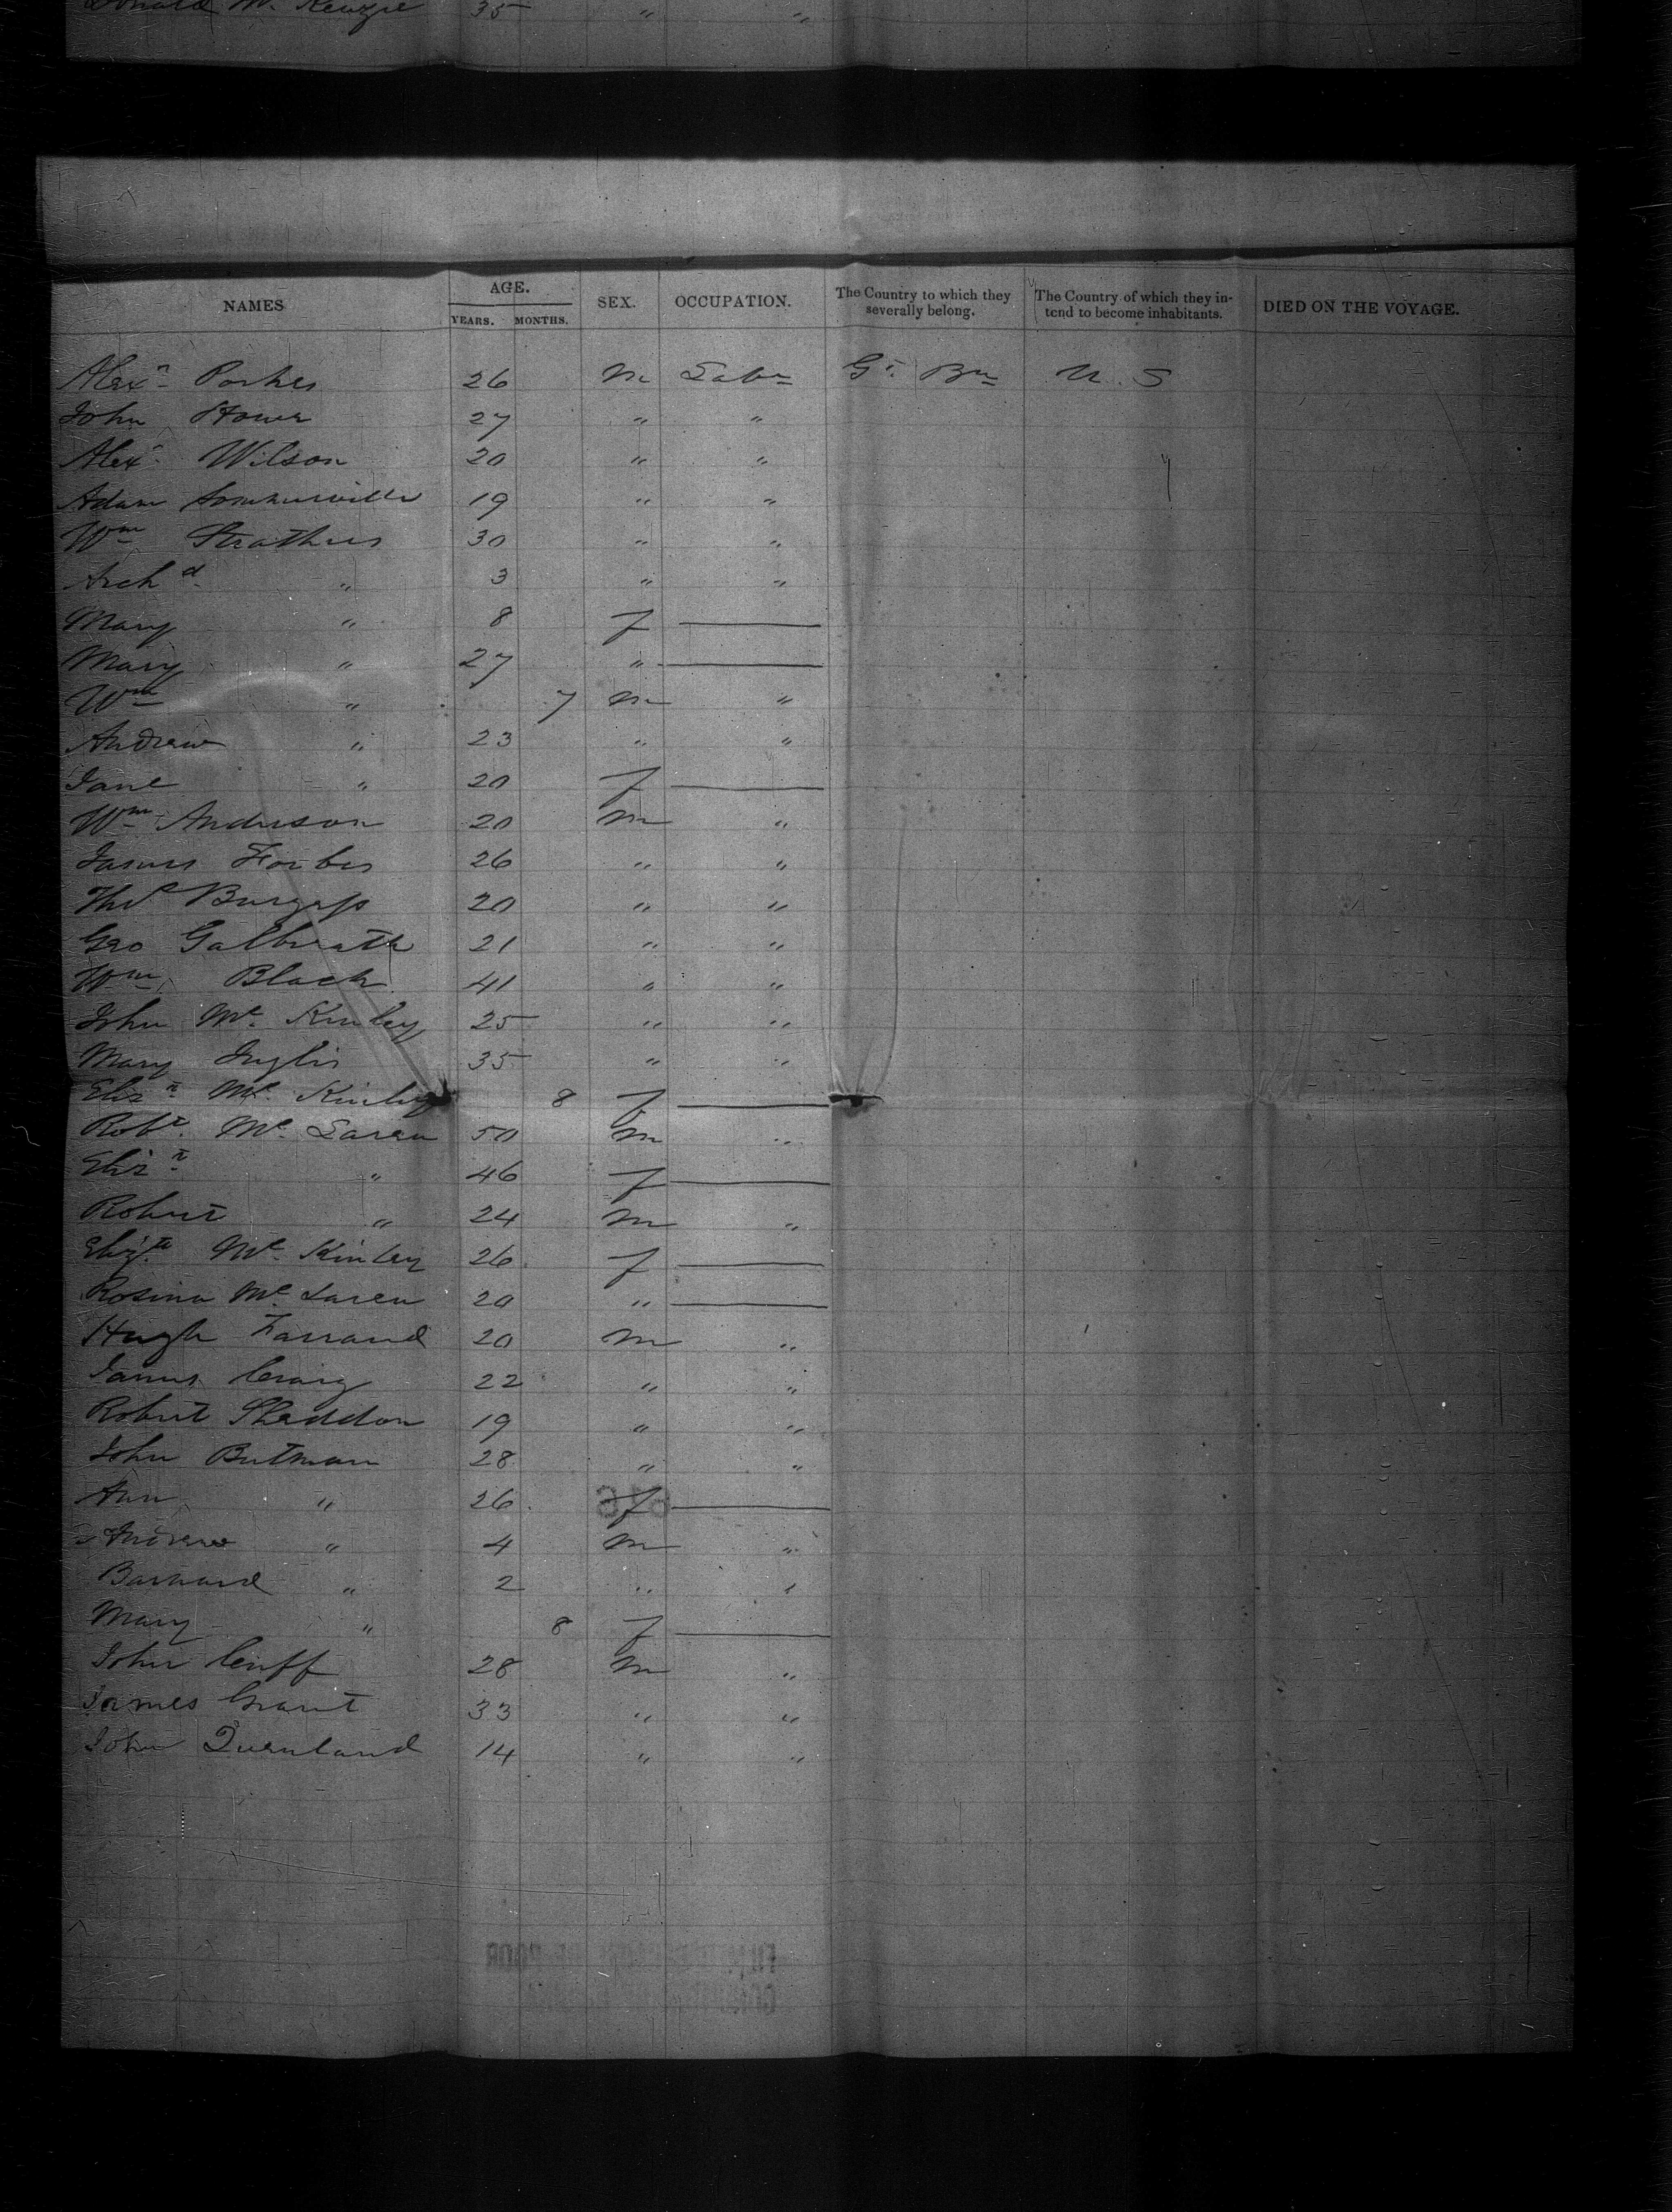 Donald Mc. Kenzie 35 " "
NAMES AGE. YEARS. MONTHS. SEX. OCCUPATION. The Country to which they severally belong. The Country of which they intend to become inhabitants. DIED ON THE VOYAGE.
Alexr. 26 m Labr Gt. Bn U. S
John 27 " "
Alexr. Wilson 20 " "
Adam Sommerville 19 " "
Wm Strathers 30 " "
Archd. " 3 " "
Mary " 8 f
Mary " 27 "
Wm " 7 m "
Andrew " 23 " "
Jane " 20 f
Wm Anderson 20 m "
James Forbes 26 " "
Thos Burgess 20 " "
Geo Galbrath 21 " "
Wm Black 41 " "
John Mc. Kinley 25 " "
Mary Inglis 35 " "
Elizh. Mc. Kinley 8 f
Robt. Mc. Laren 50 m "
Elizh. " 46 f
Robert " 24 m "
Elizth. Mc. Kinley 26 f
Rosina Mc Laren 20 "
Hugh Farrand 20 m "
James Craig 22 " "
Robert Sheddon 19 " "
John Butman 28 " "
Ann " 26 f
Andrew " 4 m "
Barnard " 2 " "
Mary " 8 f
John Cuff 28 m "
James Grant 33 " "
John 14 " "